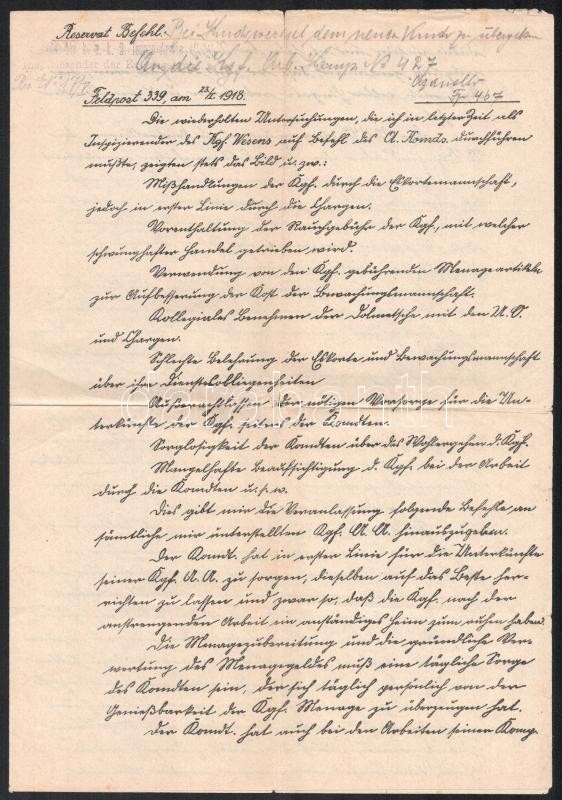 Reservat Befehl.- Bei Kmdowechsel dem neuen Kmdt zu übergeben
An die Kgf. Arb. Komp. No 427
Fp. 467
Feldpost 339, am 23/I. 1918.
Die wiederholten Untersuchungen, die ich in letzter Zeit als
Inspizierender des Kgf Wesens auf Befehl des A. Komdo. durchführen
mußte, zeigten stets das Bild u. zw.:
Mißhandlungen der Kgf. durch die Eskortemannschaft,
jedoch in erster Linie durch die Chargen.
Vorenthaltung der Rauchgebühr der Kgf., mit welcher
schwunghafter Handel getrieben wird.
Verwendung von den Kgf. gebührenden Menageartikeln
zur Aufbesserung der Kost der Bewachungsmannschaft.
Kollegiales Benehmen der Dolmetsche mit den U. O.
und Chargen.
Schlechte Belehrung der Eskorte und Bewachungsmannschaft
über ihre Dienstobliegenheiten
Außerachtlassen der nötigen Vorsorge für die Un-
terkünfte der Kgf. seitens der Komdten.
Sorglosigkeit der Komdten über das Wohlergehen d. Kgf.
Mangelhafte Beaufsichtigung d. Kgf. bei der Arbeit
durch die Komdten u. s. w.
Dies gibt mir die Veranlassung folgende Befehle an
sämtliche mir unterstellten Kgf. A. A. hinauszugeben.
Der Komdt. hat in erster Linie für die Unterkünfte
seiner Kgf. A. A. zu sorgen, dieselben auf das Beste her-
richten zu lassen und zwar so, daß die Kgf. nach der
anstrengenden Arbeit ein anständiges Heim zum ruhen haben.
Die Menagezubereitung und die gründliche Ver-
wertung des Menagegeldes muß eine tägliche Sorge
des Komdten sein, der sich täglich persönlich von der
Genießbarkeit der Kgf. Menage zu überzeugen hat.
Der Komdt. hat auch bei den Arbeiten seiner Komp.
darabanth